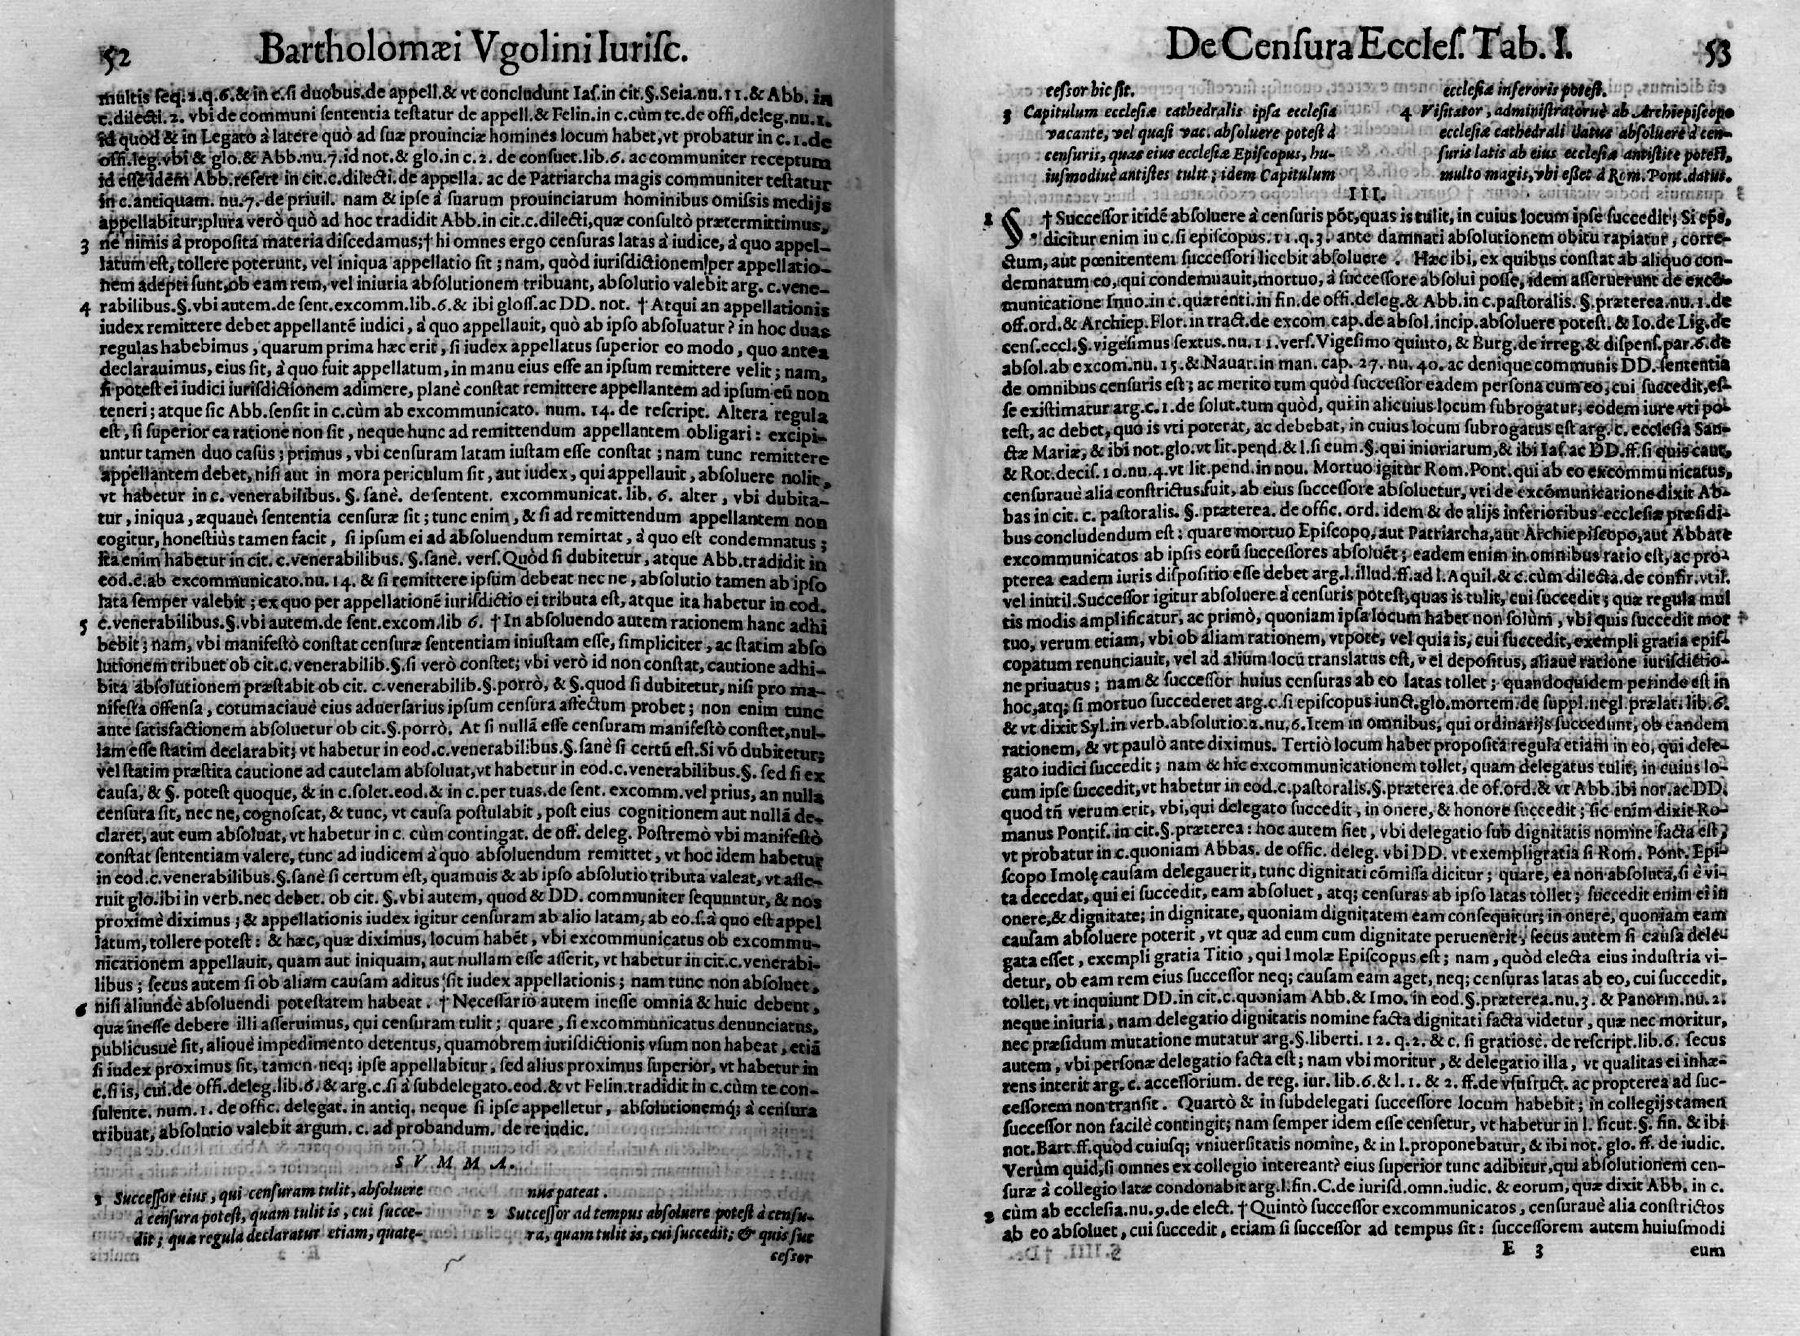 52 Bartholomæi Vgolini Iurisc.
multis seq. 2. q. 6. & in c. si duobus. de appell. & vt concludunt Ias. in cit. §. Seia. nu. 11. & Abb. in
c. dilecti. 2. vbi de communi sententia testatur de appell. & Felin. in c. cùm te. de offi. deleg. nu. 1.
id quod & in Legato à latere quò ad suæ prouinciæ homines locum habet, vt probatur in c. 1. de
offi. leg. vbi & glo. & Abb. nu. 7. id not. & glo. in c. 2. de consuet. lib. 6. ac communiter receptum
id esse idem Abb. refert in cit. c. dilecti. de appella. ac de Patriarcha magis communiter testatur
in c. antiquam. nu. 7. de priuil. nam & ipse à suarum prouinciarum hominibus omissis medijs
appellabitur; plura verò quò ad hoc tradidit Abb. in cit. c. dilecti, quæ consultò prætermittimus,
3 ne nimis à proposita materia discedamus; † hi omnes ergo censuras latas à iudice, à quo appel-
latum est, tollere poterunt, vel iniqua appellatio sit; nam, quòd iurisdictionem per appellatio-
nem adepti sunt, ob eam rem, vel iniuria absolutionem tribuant, absolutio valebit arg. c. vene-
4 rabilibus. §. vbi autem. de sent. excomm. lib. 6. & ibi gloss. ac DD. not. † Atqui an appellationis
iudex remittere debet appellantē iudici, à quo appellauit, quò ab ipso absoluatur? in hoc duas
regulas habebimus, quarum prima hæc erit, si iudex appellatus superior eo modo, quo antea
declarauimus, eius sit, à quo fuit appellatum, in manu eius esse an ipsum remittere velit; nam,
si potest ei iudici iurisdictionem adimere, planè constat remittere appellantem ad ipsum eū non
teneri; atque sic Abb. sensit in c. cùm ab excommunicato. num. 14. de rescript. Altera regula
est, si superior ea ratione non sit, neque hunc ad remittendum appellantem obligari: excipi-
untur tamen duo casus; primus, vbi censuram latam iustam esse constat; nam tunc remittere
appellantem debet, nisi aut in mora periculum sit, aut iudex, qui appellauit, absoluere nolit,
vt habetur in c. venerabilibus. §. sanè. de sentent. excommunicat. lib. 6. alter, vbi dubita-
tur, iniqua, æquauè sententia censuræ sit; tunc enim, & si ad remittendum appellantem non
cogitur, honestiùs tamen facit, si ipsum ei ad absoluendum remittat, à quo est condemnatus;
ita enim habetur in cit. c. venerabilibus. §. sanè. vers. Quòd si dubitetur, atque Abb. tradidit in
eod. c. ab excommunicato. nu. 14. & si remittere ipsum debeat nec ne, absolutio tamen ab ipso
lata semper valebit; ex quo per appellationē iurisdictio ei tributa est, atque ita habetur in eod.
5 c. venerabilibus. §. vbi autem. de sent. excom. lib 6. † In absoluendo autem rationem hanc adhi
bebit; nam, vbi manifestò constat censuræ sententiam iniustam esse, simpliciter, ac statim abso
lutionem tribuet ob cit. c. venerabilib. §. si verò constet; vbi verò id non constat, cautione adhi-
bita absolutionem præstabit ob cit. c. venerabilib. §. porrò, & §. quod si dubitetur, nisi pro ma-
nifesta offensa, cotumaciauè eius aduersarius ipsum censura affectum probet; non enim tunc
ante satisfactionem absoluetur ob cit. §. porrò. At si nullā esse censuram manifestò constet, nul-
lam esse statim declarabit; vt habetur in eod. c. venerabilibus. §. sanè si certū est. Si vō dubitetur;
vel statim præstita cautione ad cautelam absoluat, vt habetur in eod. c. venerabilibus. §. sed si ex
causa, & §. potest quoque, & in c. solet. eod. & in c. per tuas. de sent. excomm. vel prius, an nulla
censura sit, nec ne, cognoscat, & tunc, vt causa postulabit, post eius cognitionem aut nullā de-
claret, aut eum absoluat, vt habetur in c. cùm contingat. de off. deleg. Postremò vbi manifestò
constat sententiam valere, tunc ad iudicem à quo absoluendum remittet, vt hoc idem habetur
in eod. c. venerabilibus. §. sanè si certum est, quamuis & ab ipso absolutio tributa valeat, vt asse-
ruit glo. ibi in verb. nec debet. ob cit. §. vbi autem, quod & DD. communiter sequuntur, & nos
proximè diximus; & appellationis iudex igitur censuram ab alio latam, ab eo. s. à quo est appel
latum, tollere potest: & hæc, quæ diximus, locum habēt, vbi excommunicatus ob excommu-
nicationem appellauit, quam aut iniquam, aut nullam esse asserit, vt habetur in cit. c. venerabi-
libus; secus autem si ob aliam causam aditus sit iudex appellationis; nam tunc non absoluet,
6 nisi aliundè absoluendi potestatem habeat. † Necessariò autem inesse omnia & huic debent,
quæ inesse debere illi asseruimus, qui censuram tulit; quare, si excommunicatus denunciatus,
publicusuè sit, alioue impedimento detentus, quamobrem iurisdictionis vsum non habeat, etiā
si iudex proximus sit, tamen neq; ipse appellabitur, sed alius proximus superior, vt habetur in
c. si is, cui. de offi. deleg. lib. 6. & arg. c. si à subdelegato. eod. & vt Felin. tradidit in c. cùm te con-
sulente. num. 1. de offic. delegat. in antiq. neque si ipse appelletur, absolutionemq́; à censura
tribuat, absolutio valebit argum. c. ad probandum. de re iudic.
S V M M A.
1 Successor eius, qui censuram tulit, absoluere
à censura potest, quam tulit is, cui succe-
dit; quæ regula declaratur etiam, quate-
nus pateat.
2 Successor ad tempus absoluere potest à censu-
ra, quam tulit is, cui succedit; & quis suc
cessor
De Censura Eccles. Tab. I. 53
cessor hic sit.
3 Capitulum ecclesiæ cathedralis ipsa ecclesia
vacante, vel quasi vac. absoluere potest à
censuris, quas eius ecclesiæ Episcopus, hu-
iusmodiuè antistes tulit; idem Capitulum
ecclesiæ inferoris potest.
4 Visitator, administratoruè ab Archiepiscopo
ecclesiæ cathedrali datus absoluere à cen-
suris latis ab eius ecclesiæ antistite potest,
multo magis, vbi esset à Rom. Pont. datus.
III.
1 §. † Successor itidē absoluere à censuris pōt, quas is tulit, in cuius locum ipse succedit; Si eps,
dicitur enim in c. si episcopus. 11. q. 3. ante damnati absolutionem obitu rapiatur, corre-
ctum, aut pœnitentem successori licebit absoluere. Hæc ibi, ex quibus constat ab aliquo con-
demnatum eo, qui condemnauit, mortuo, à successore absolui posse, idem asseruerunt de excō-
municatione Inno. in c. quærenti. in fin. de offi. deleg. & Abb. in c. pastoralis. §. præterea. nu. 1. de
off. ord. & Archiep. Flor. in tract. de excom. cap. de absol. incip. absoluere potest. & Io. de Lig. de
cens. eccl. §. vigesimus sextus. nu. 11. vers. Vigesimo quinto, & Burg. de irreg. & dispens. par. 6. de
absol. ab excom. nu. 15. & Nauar. in man. cap. 27. nu. 40. ac denique communis DD. sententia
de omnibus censuris est; ac merito tum quòd successor eadem persona cum eo, cui succedit, es-
se existimatur arg. c. 1. de solut. tum quòd, qui in alicuius locum subrogatur, eodem iure vti po-
test, ac debet, quo is vti poterat, ac debebat, in cuius locum subrogatus est arg. c. ecclesia San-
ctæ Mariæ, & ibi not. glo. vt lit. pend. & l. si eum. §. qui iniuriarum, & ibi Ias. ac DD. ff. si quis caut,
& Rot. decis. 10. nu. 4. vt lit. pend. in nou. Mortuo igitur Rom. Pont. qui ab eo excommunicatus,
censurauè alia constrictus fuit, ab eius successore absoluetur, vti de excōmunicatione dixit Ab-
bas in cit. c. pastoralis. §. præterea. de offic. ord. idem & de alijs inferioribus ecclesiæ præsidi-
bus concludendum est: quare mortuo Episcopo, aut Patriarcha, aut Archiepiscopo, aut Abbate
excommunicatos ab ipsis eorū successores absoluēt; eadem enim in omnibus ratio est, ac pro-
pterea eadem iuris dispositio esse debet arg. l. illud. ff. ad l. Aquil. & c. cùm dilecta. de confir. vtil.
vel inutil. Successor igitur absoluere à censuris potest, quas is tulit, cui succedit; quæ regula mul
tis modis amplificatur, ac primò, quoniam ipsa locum habet non solùm, vbi quis succedit mor
tuo, verum etiam, vbi ob aliam rationem, vtpote, vel quia is, cui succedit, exempli gratia epis-
copatum renunciauit, vel ad alium locū translatus est, vel depositus, aliauè ratione iurisdictio-
ne priuatus; nam & successor huius censuras ab eo latas tollet; quandoquidem perinde est in
hoc, atq; si mortuo succederet arg. c. si episcopus iunct. glo. mortem. de suppl. negl. prælat. lib. 6.
& vt dixit Syl. in verb. absolutio. 2. nu. 6. Item in omnibus, qui ordinarijs succedunt, ob eandem
rationem, & vt paulò ante diximus. Tertiò locum habet proposita regula etiam in eo, qui dele-
gato iudici succedit; nam & hic excommunicationem tollet, quam delegatus tulit, in cuius lo-
cum ipse succedit, vt habetur in eod. c. pastoralis. §. præterea. de of. ord. & vt Abb. ibi not. ac DD.
quod tñ verum erit, vbi, qui delegato succedit, in onere, & honore succedit; sic enim dixit Ro-
manus Pontif. in cit. §. præterea: hoc autem fiet, vbi delegatio sub dignitatis nomine facta est;
vt probatur in c. quoniam Abbas. de offic. deleg. vbi DD. vt exempli gratia si Rom. Pont. Epi-
scopo Imolę causam delegauerit, tunc dignitati cōmissa dicitur; quare, ea non absoluta, si è vi-
ta decedat, qui ei succedit, eam absoluet, atq; censuras ab ipso latas tollet; succedit enim ei in
onere, & dignitate; in dignitate, quoniam dignitatem eam consequitur; in onere, quoniam eam
causam absoluere poterit, vt quæ ad eum cum dignitate peruenerit; secus autem si causa dele-
gata esset, exempli gratia Titio, qui Imolæ Episcopus est; nam, quòd electa eius industria vi-
detur, ob eam rem eius successor neq; causam eam aget, neq; censuras latas ab eo, cui succedit,
tollet, vt inquiunt DD. in cit. c. quoniam Abb. & Imo. in eod. §. præterea. nu. 3. & Panorm. nu. 2.
neque iniuria, nam delegatio dignitatis nomine facta dignitati facta videtur, quæ nec moritur,
nec præsidum mutatione mutatur arg. §. liberti. 12. q. 2. & c. si gratiosè. de rescript. lib. 6. secus
autem, vbi personæ delegatio facta est; nam vbi moritur, & delegatio illa, vt qualitas ei inhæ-
rens interit arg. c. accessorium. de reg. iur. lib. 6. & l. 1. & 2. ff. de vsufruct. ac propterea ad suc-
cessorem non transit. Quartò & in subdelegati successore locum habebit; in collegijs tamen
successor non facilè contingit; nam semper idem esse censetur, vt habetur in l. sicut. §. fin. & ibi
not. Bart. ff. quod cuiusq; vniuersitatis nomine, & in l. proponebatur, & ibi not. glo. ff. de iudic.
Verùm quid, si omnes ex collegio intereant? eius superior tunc adibitur, qui absolutionem cen-
suræ à collegio latæ condonabit arg. l. fin. C. de iurisd. omn. iudic. & eorum, quæ dixit Abb. in c.
2 cùm ab ecclesia. nu. 9. de elect. † Quintò successor excommunicatos, censurauè alia constrictos
ab eo absoluet, cui succedit, etiam si successor ad tempus sit: successorem autem huiusmodi
E 3 eum